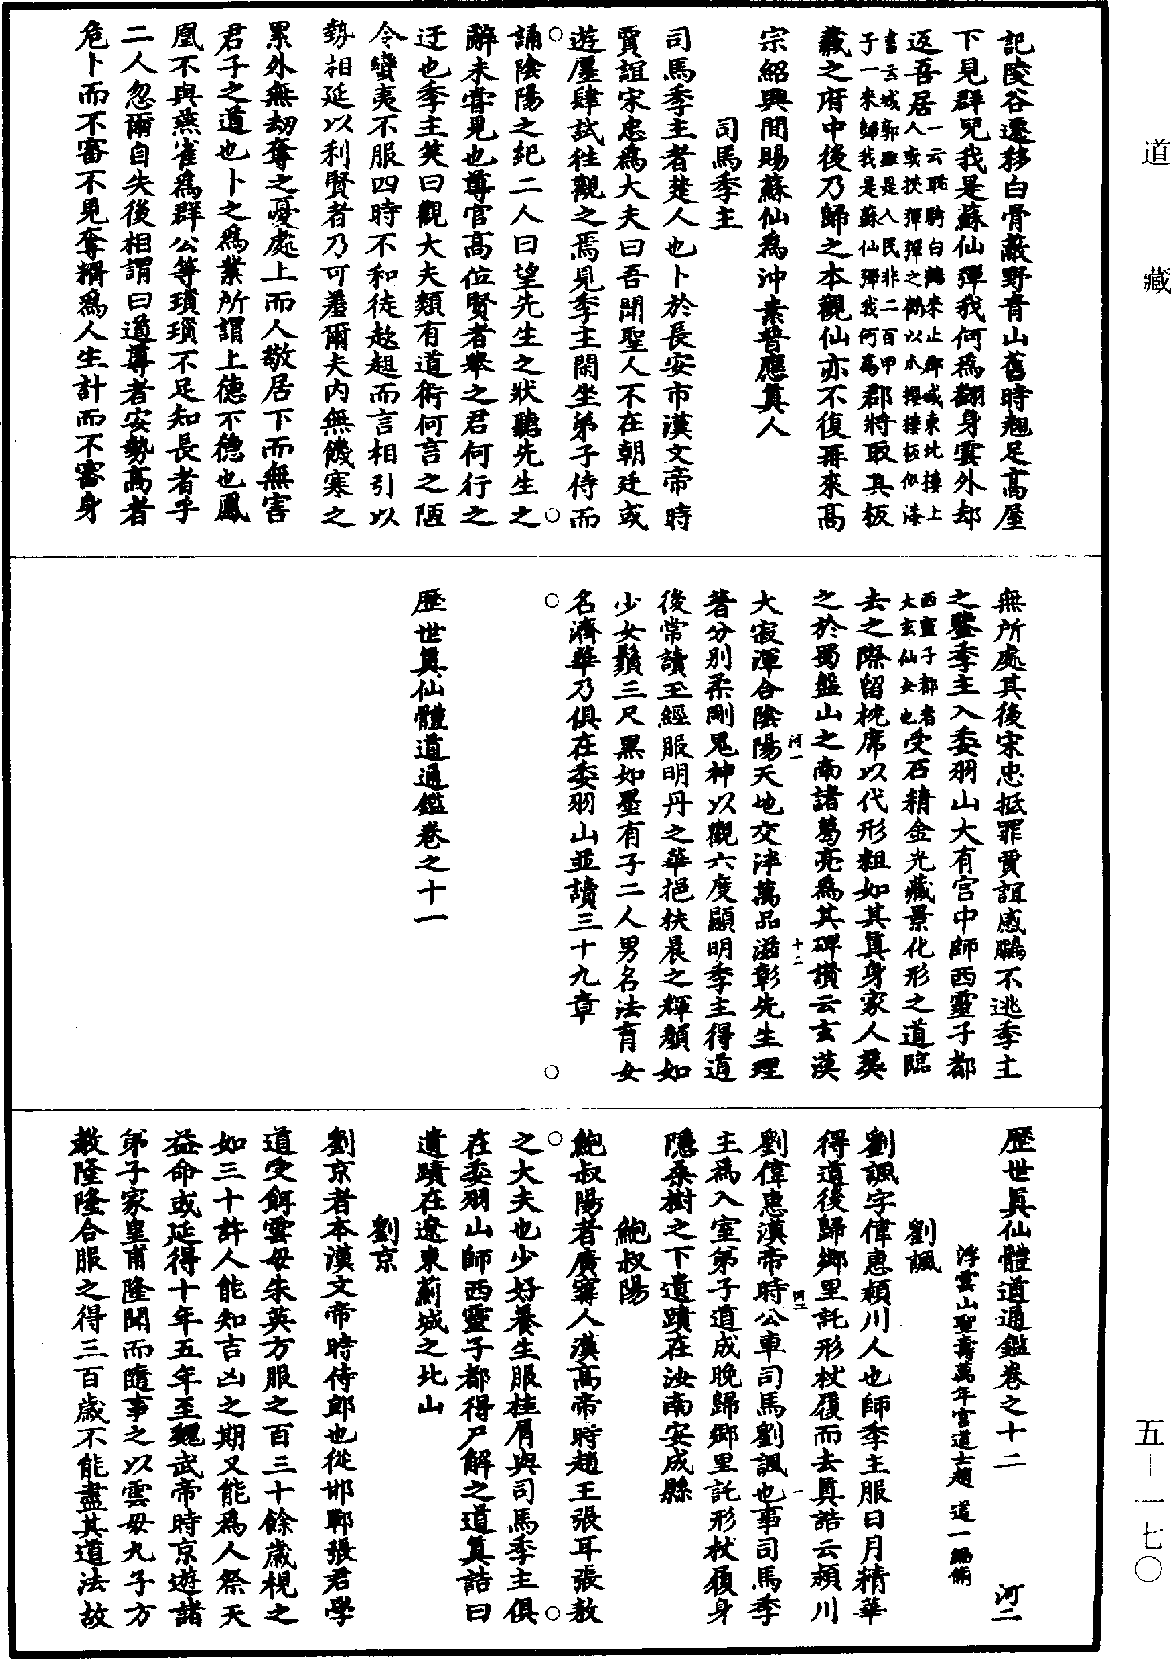 道藏
五-一七〇
記陵谷遷移白骨蔽野青山舊時翹足高屋
下見群兒我是蘇仙彈我何爲翻身雲外却
返吾居一云耽騎白鶴來止郡城東北樓上
人或挾彈彈之鶴以爪攫樓板似漆
書云城郭雖是人民非三百甲
子一來歸我是蘇仙彈我何爲郡將取其板
藏之府中後乃歸之本觀仙亦不復再來高
宗紹興間賜蘇仙爲沖素普應真人
司馬季主
司馬季主者楚人也卜於長安市漢文帝時
賈誼宋忠爲大夫曰吾聞聖人不在朝廷或
遊屠肆試往觀之焉見季主閑坐弟子侍而
誦陰陽之紀二人曰望先生之狀聽先生之
辭未嘗見也尊官高位賢者舉之君何行之
迂也季主笑曰觀大夫類有道術何言之陋
令蠻夷不服四時不和徒趑趄而言相引以
勢相延以利賢者乃可羞爾夫內無饑寒之
累外無劫奪之憂處上而人敬居下而無害
君子之道也卜之爲業所謂上德不德也鳳
凰不與燕雀爲群公等瑣瑣不足知長者乎
二人忽爾自失後相謂曰道尊者安勢高者
危卜而不審不見奪糈爲人生計而不審身
無所處其後宋忠抵罪賈誼感鵩不逃季主
之鑒季主入委羽山大有宮中師西靈子都
西靈子都者
太玄仙女也受石精金光藏景化形之道臨
去之際留枕席以代形粗如其真身家人葬
之於蜀盤山之南諸葛亮爲其碑讚云玄漠
大寂渾合陰陽天地交泮萬品滋彰先生理
著分別柔剛鬼神以觀六度顯明季主得道
後常讀玉經服明丹之華挹扶晨之輝顏如
少女鬚三尺黑如墨有子二人男名法育女
名濟華乃俱在委羽山並讀三十九章
河一
十二
歷世真仙體道通鑑卷之十一
歷世真仙體道通鑑卷之十二
河二
浮雲山聖壽萬年宮道士趙道一編修
劉諷
劉諷字偉惠潁川人也師季主服日月精華
得道後歸鄉里託形杖履而去真誥云潁川
劉偉惠漢帝時公車司馬劉諷也事司馬季
主爲入室弟子道成晚歸鄉里託形杖履身
隱桑樹之下遺蹟在汝南安成縣
河二
一
鮑叔陽
鮑叔陽者廣寧人漢高帝時趙王張耳張敖
之大夫也少好養生服桂屑與司馬季主俱
在委羽山師西靈子都得尸解之道真誥曰
遺蹟在遼東薊城之北山
劉京
劉京者本漢文帝時侍郎也從邯鄲張君學
道受餌雲母朱英方服之百三十餘歲視之
如三十許人能知吉凶之期又能爲人祭天
益命或延得十年五年至魏武帝時京遊諸
弟子家皇甫隆聞而隨事之以雲母九子方
教隆隆合服之得三百歲不能盡其道法故